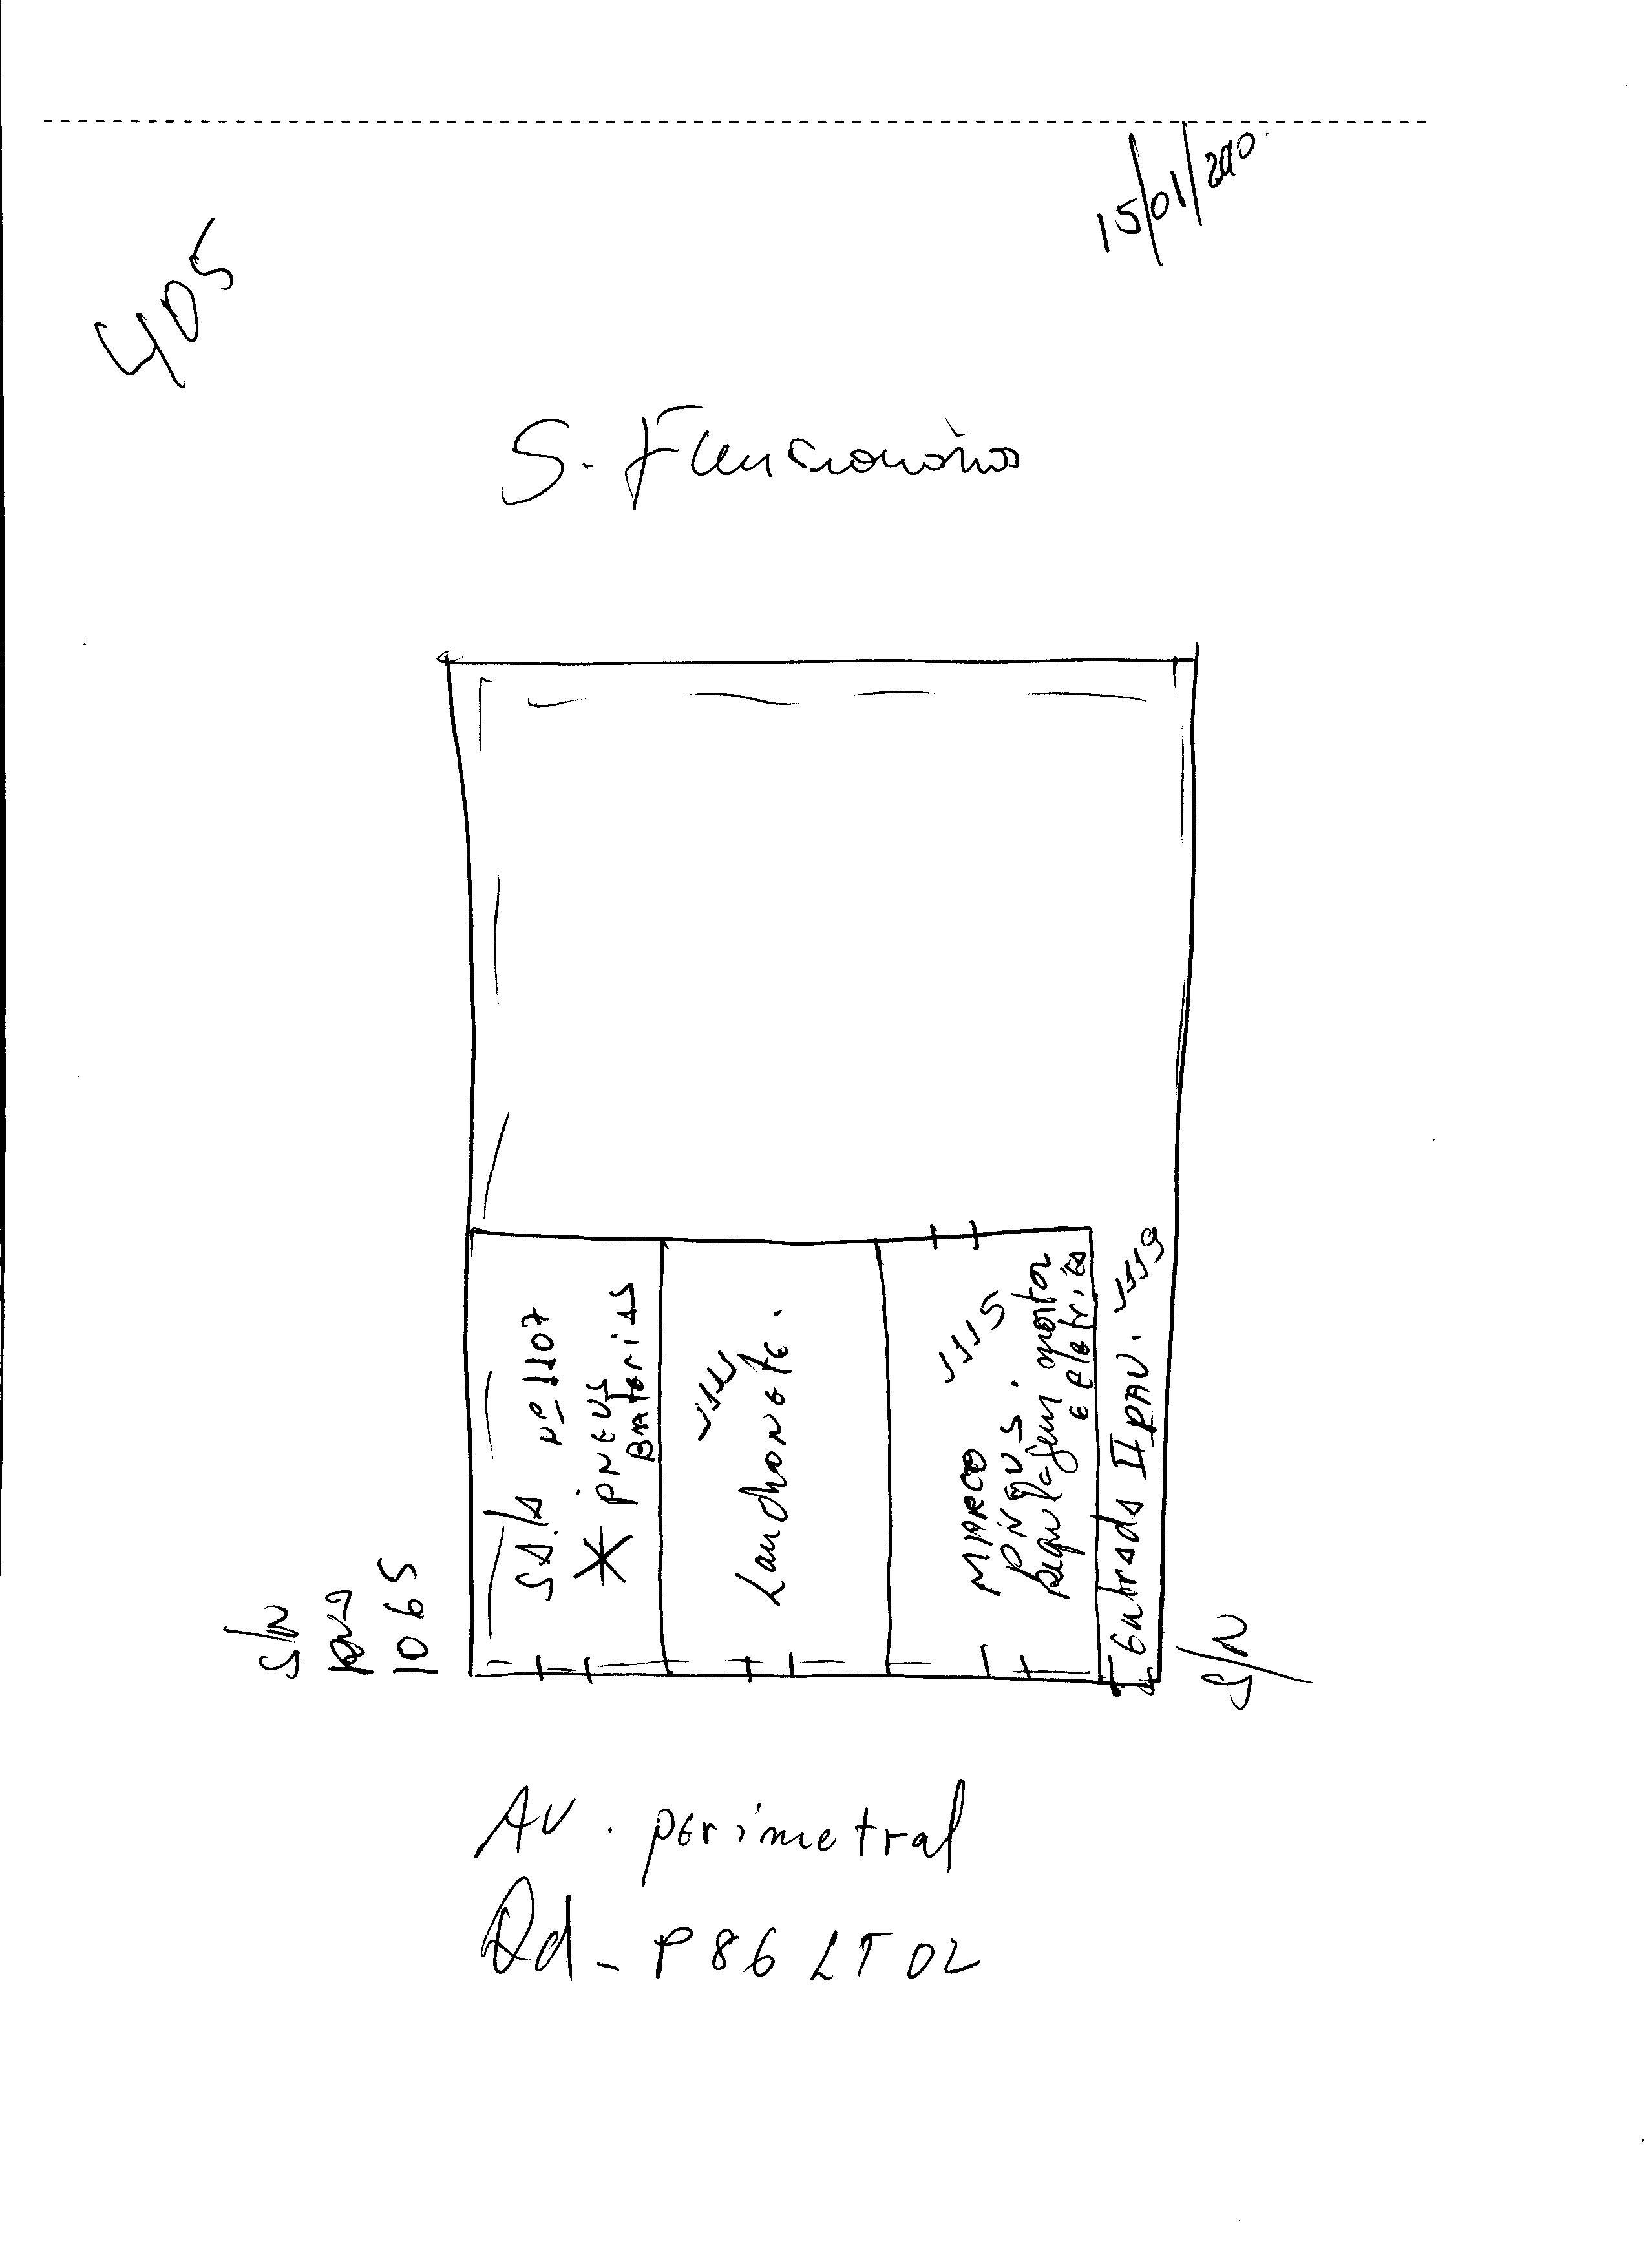 15/01/2010
405
S. Funcionários
Sala nº 1107
* pneus
Baterias
1111
Lanchonete.
1115
MARCO
pneus.
Regulagem motor
e eletrico
Entrada II PAV. 1119
S/N
1065
S/N
AV. perimetral
Qd - P86 LT 02